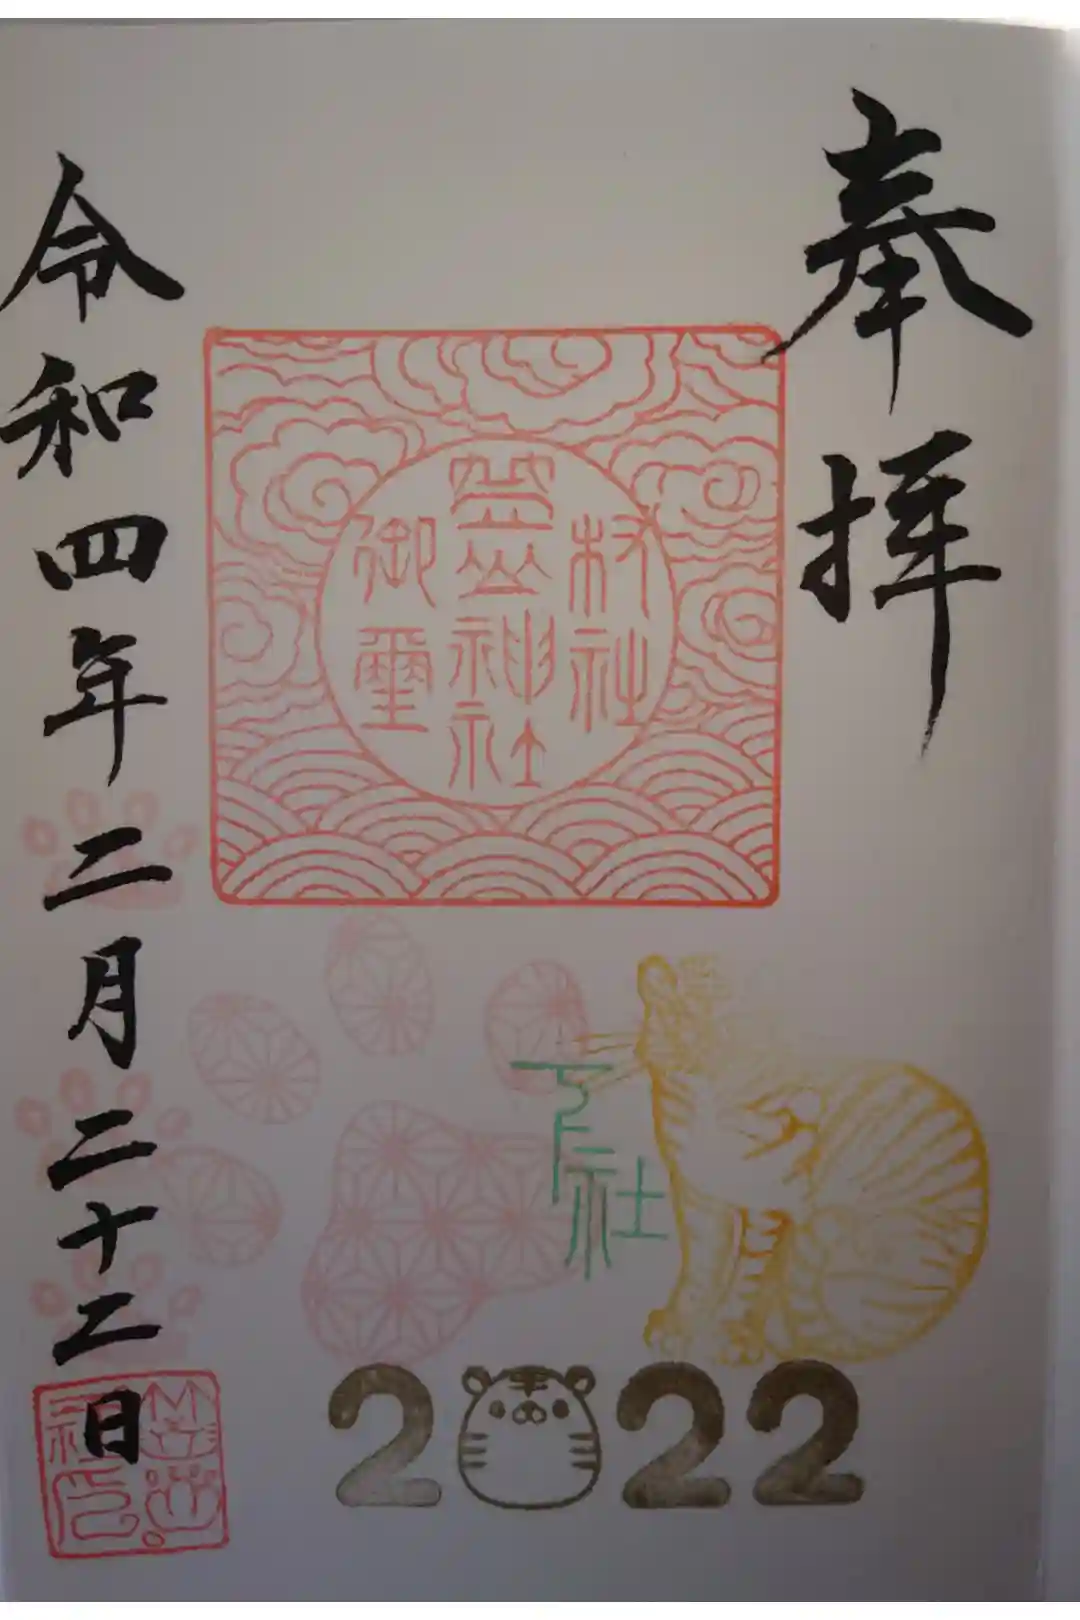 奉拝
村社
笠山神社
御璽
下社
令和四年二月二十二日
2022